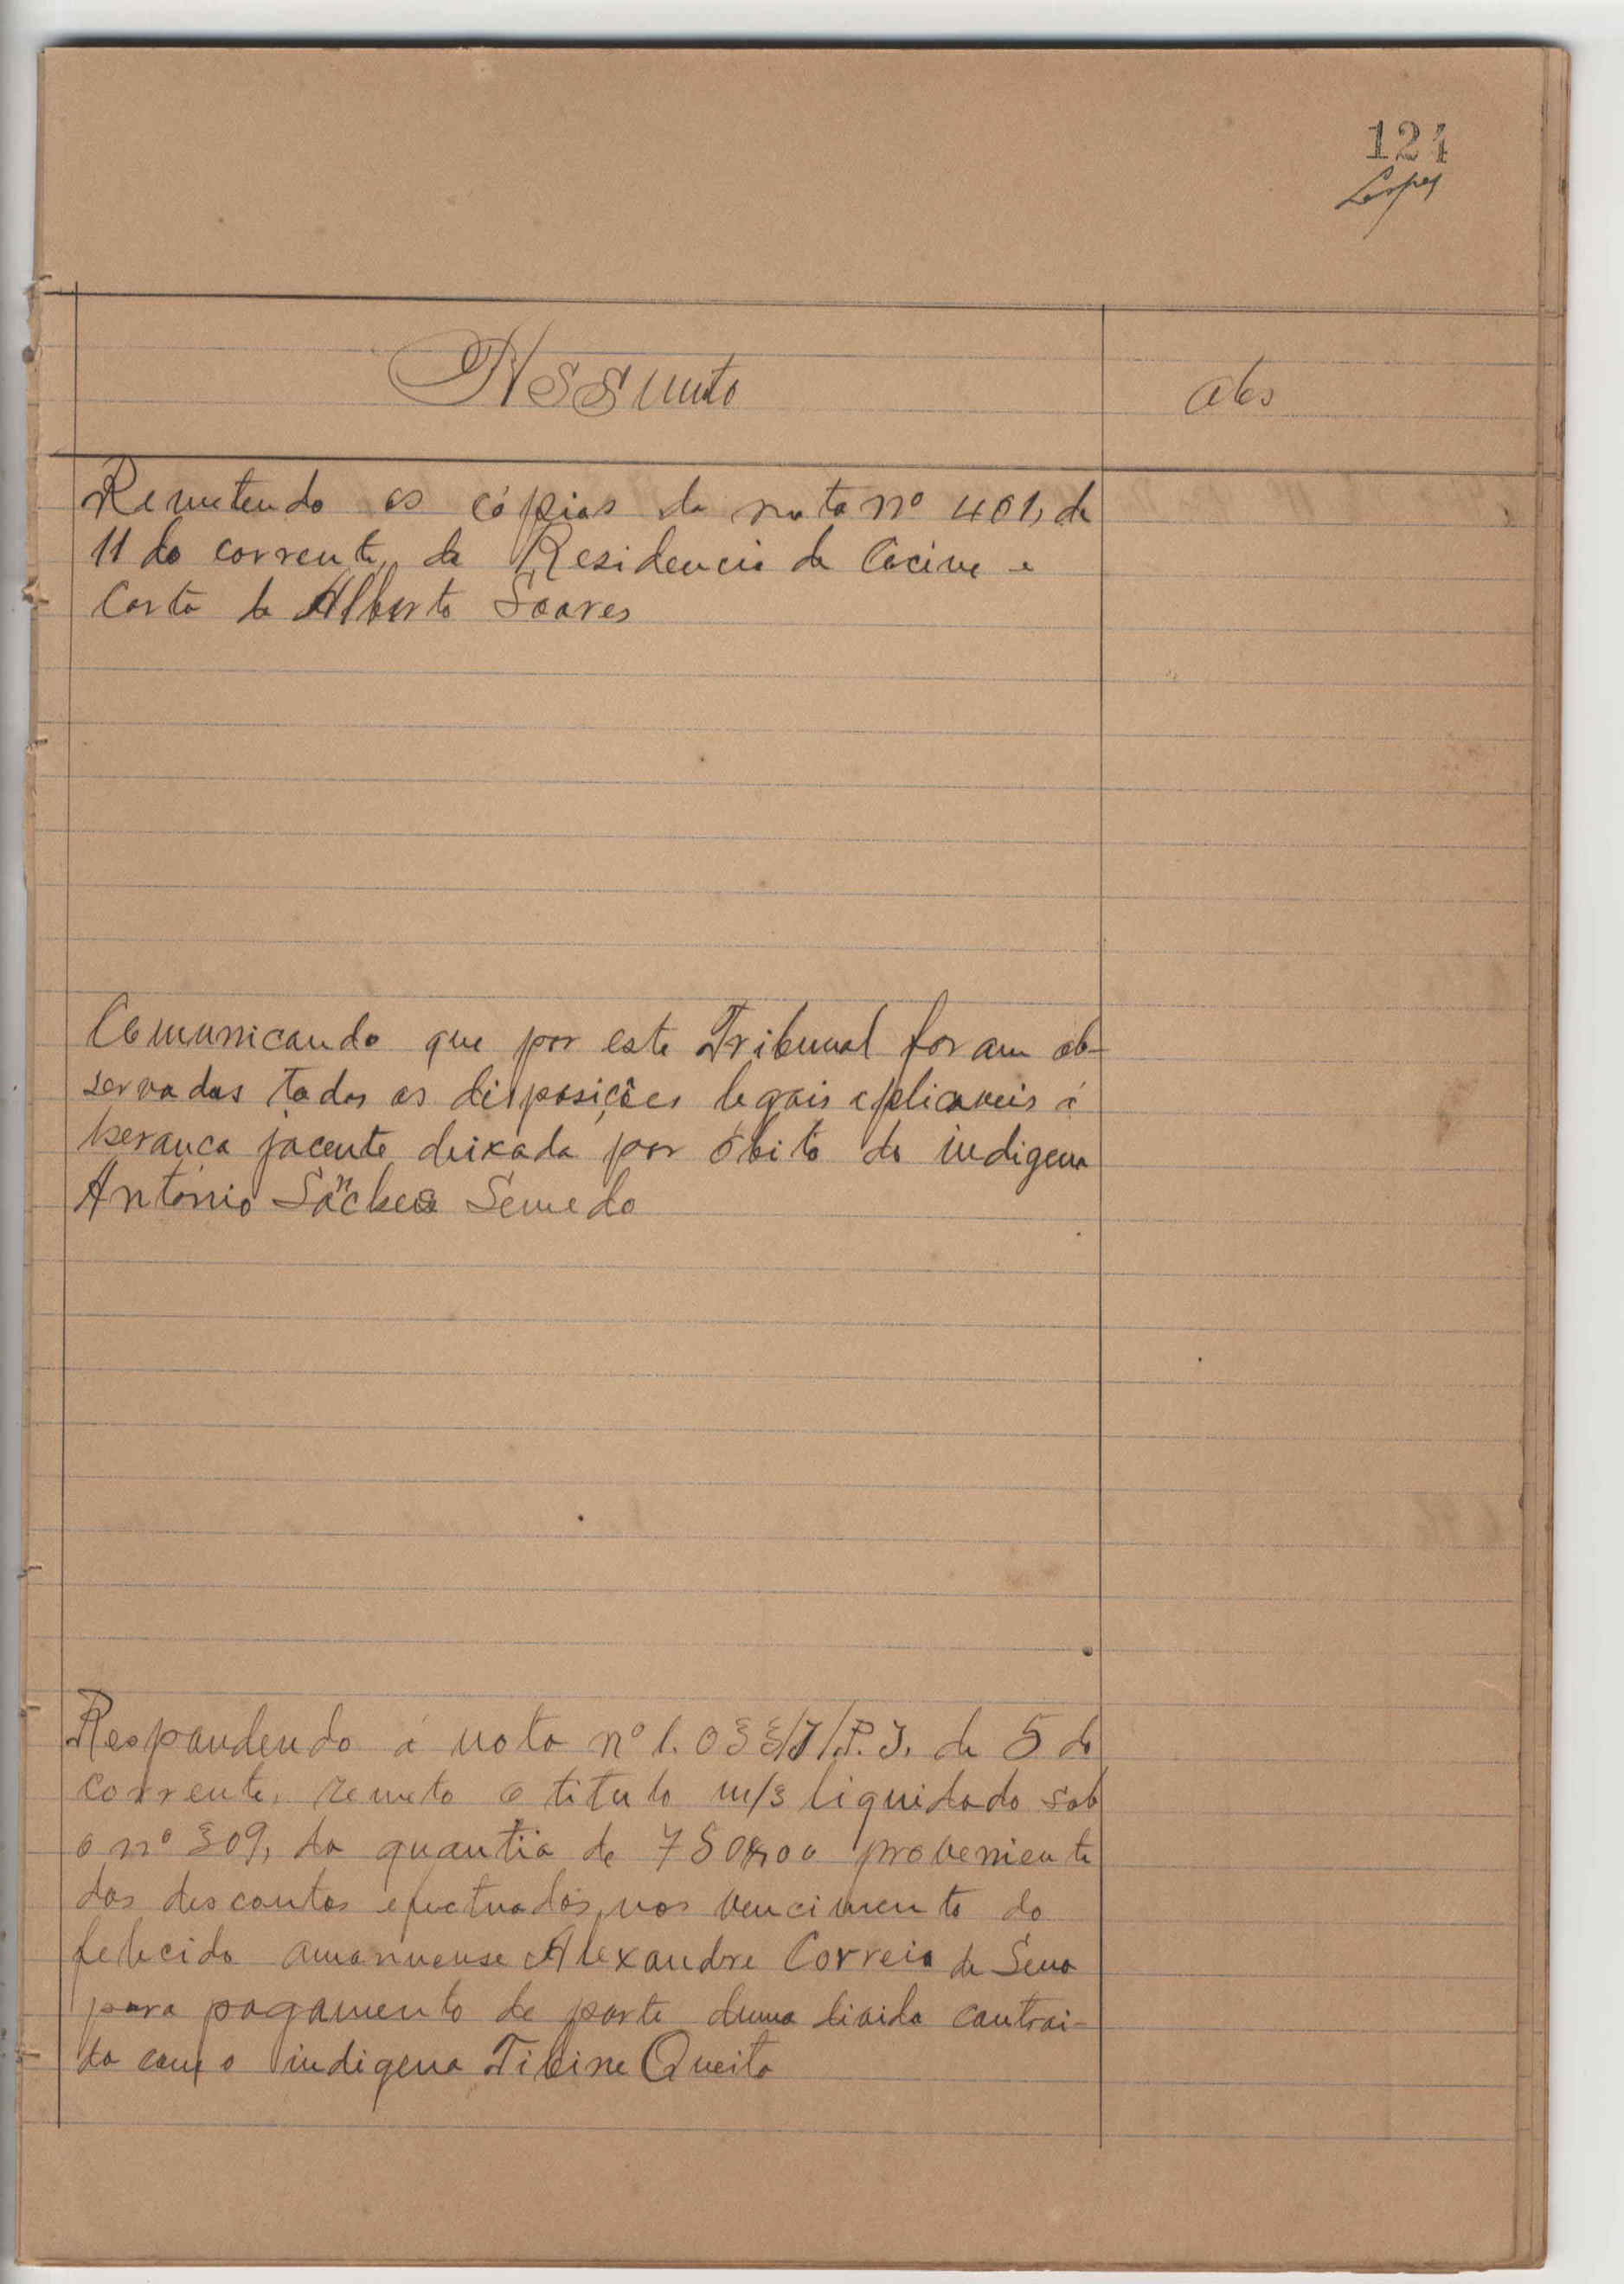 121
Lopes
Assunto
Obs
Remetendo as cópias da nota nº 401, de
11 do corrente, da Residencia de Cacine e
Carta de Alberto Soares
Comunicando que por este Tribunal foram ob-
servadas todas as disposições legais aplicaveis á
herança jacente deixada por óbito do indigena
António Sanches Semedo
Respondendo á nota nº 1.033/J/P.J. de 5 do
corrente, remeto o titulo m/3 liquidado sob
o nº 309, da quantia de 750$00 proveniente
dos descontos efectuados nos vencimento do
felecido amanuense Alexandre Correia de Sena
para pagamento de parte duma divida contrai-
da com o indigena Tibine Queita